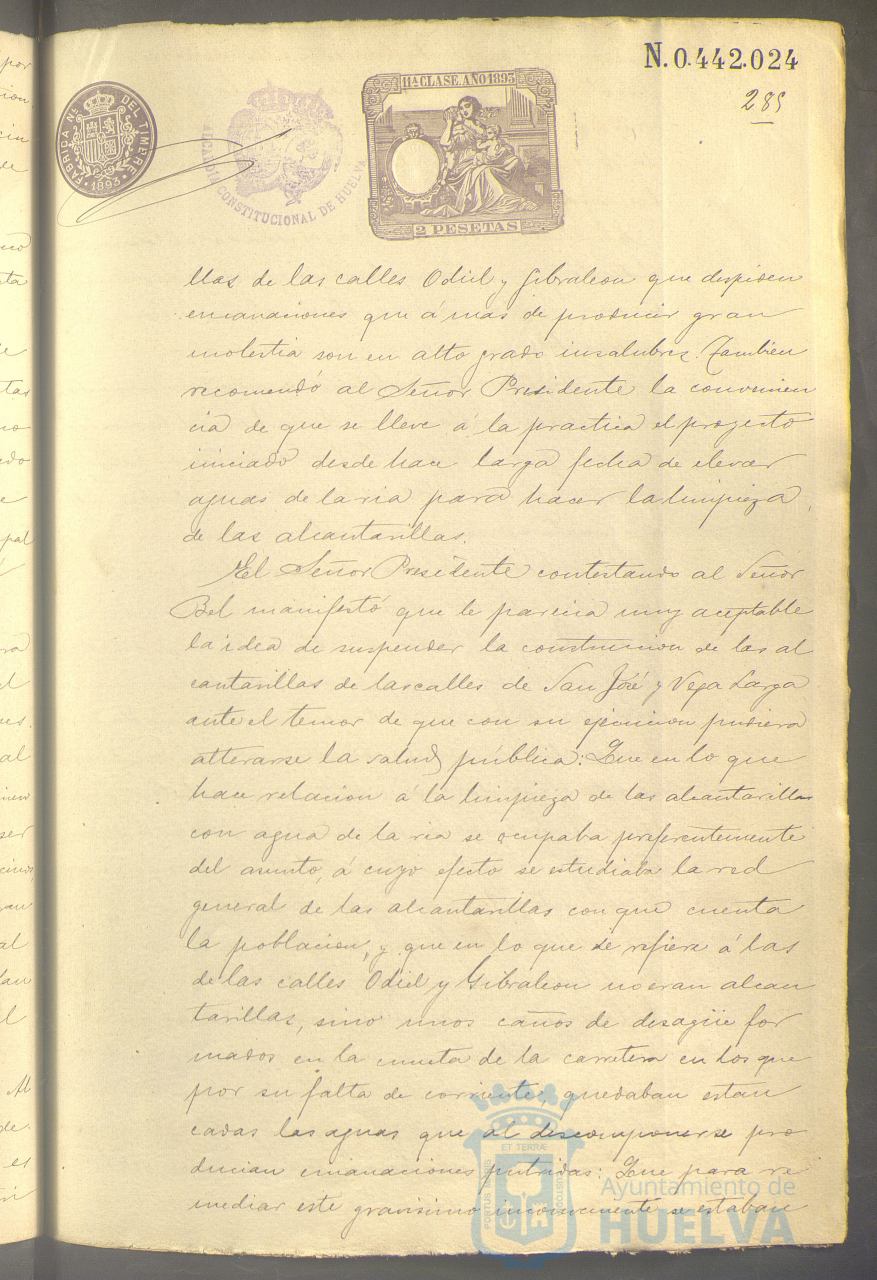 N. 0.442.024
285
FABRICA NL. DEL TIMBRE
1893
ALCALDIA CONSTITUCIONAL DE HUELVA
11ª CLASE. AÑO 1893
2 PESETAS
llas de las calles Odiel y Gibraleon que despiden
emanaciones que á mas de producir gran
molestia son en alto grado insalubres. Tambien
recomendó al Señor Presidente la convenien
cia de que se lleve á la practica el proyecto
iniciado desde hace larga fecha de elevar
aguas de la ria para hacer la limpieza
de las alcantarillas.
El Señor Presidente contestando al Señor
Bel manifestó que le parecia muy aceptable
la idea de suspender la construccion de las al
cantarillas de las calles de San José y Vega Larga
ante el temor de que con su ejecucion pudiera
alterarse la salud pública: Que en lo que
hace relacion á la limpieza de las alcantarillas
con agua de la ria se ocupaba preferentemente
del asunto, á cuyo efecto se estudiaba la red
general de las alcantarillas con que cuenta
la poblacion, y que en lo que se refiere á las
de las calles Odiel y Gibraleon no eran alcan
tarillas, sino unos caños de desagüe for
mados en la cuneta de la carretera en los que
por su falta de corriente, quedaban estan
cadas las aguas que al descomponerse pro
ducian emanaciones putridas: Que para re
mediar este gravisimo inconveniente se estaban
PORTUS MARIS ET TERRÆ CUSTODIA
Ayuntamiento de
HUELVA